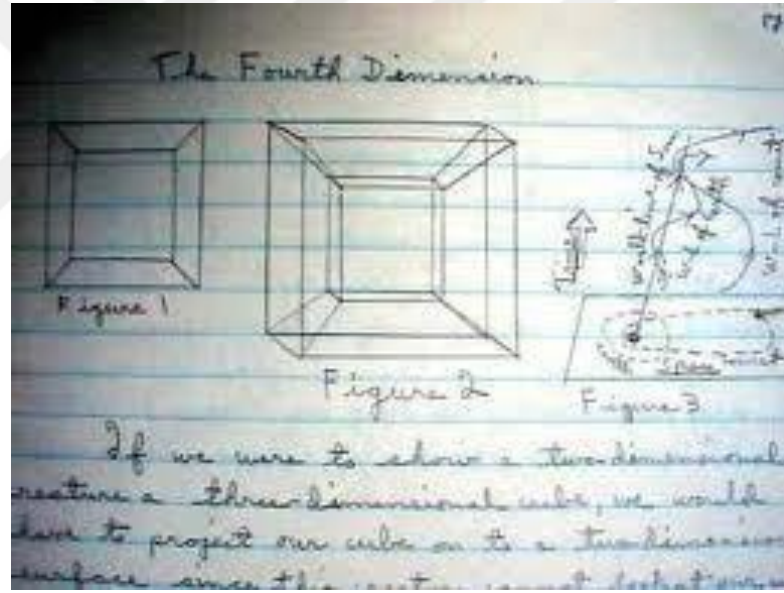 The Fourth Dimension
Figure 1
Figure 2
Figure 3
Time
world line of sun
world line of earth
space
If we were to show a two-dimensional
creature a three-dimensional cube, we would
have to project our cube on to a two dimension
surface since this creature cannot